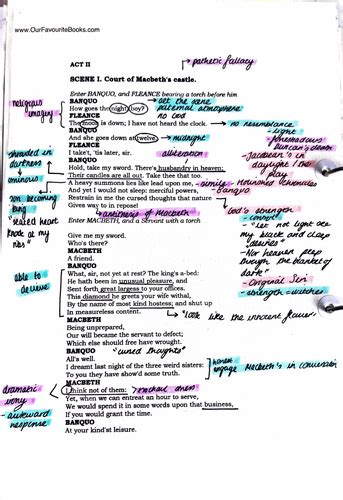 www.OurFavouriteBooks.com
pathetic fallacy
ACT II
SCENE I. Court of Macbeth's castle.
Enter BANQUO, and FLEANCE bearing a torch before him
religious imagery
BANQUO
How goes the night, boy?
set the scene
paternal atmosphere
FLEANCE
no God
The moon is down; I have not heard the clock.
no resemblance
- light
BANQUO
And she goes down at twelve.
midnight
foreshadows Duncan's demise
FLEANCE
I take't, 'tis later, sir.
alliteration
- Jacobean's in daylight / the play
shrouded in darkness
BANQUO
Hold, take my sword. There's husbandry in heaven;
Their candles are all out. Take thee that too.
ominous
A heavy summons lies like lead upon me,
simile
And yet I would not sleep: merciful powers,
Banquo
Restrain in me the cursed thoughts that nature
Gives way to in repose!
antithesis of Macbeth
Enter MACBETH, and a Servant with a torch
non becoming king
"seated heart knock at my ribs"
God's strength
- convert
- "Let not light see my black and deep desires"
- Nor heaven peep through the blanket of dark"
- Original Sin
- strength = witches
Give me my sword.
Who's there?
MACBETH
A friend.
BANQUO
What, sir, not yet at rest? The king's a-bed:
He hath been in unusual pleasure, and
Sent forth great largess to your offices.
This diamond he greets your wife withal,
By the name of most kind hostess; and shut up
In measureless content.
able to deceive
"look like the innocent flower.
MACBETH
Being unprepared,
Our will became the servant to defect;
Which else should free have wrought.
BANQUO
"cursed thoughts"
All's well.
I dreamt last night of the three weird sisters:
To you they have show'd some truth.
honest
engage Macbeth's in conversion
MACBETH
I think not of them:
dramatic irony
- awkward response
Yet, when we can entreat an hour to serve,
We would spend it in some words upon that business,
If you would grant the time.
BANQUO
At your kind'st leisure.